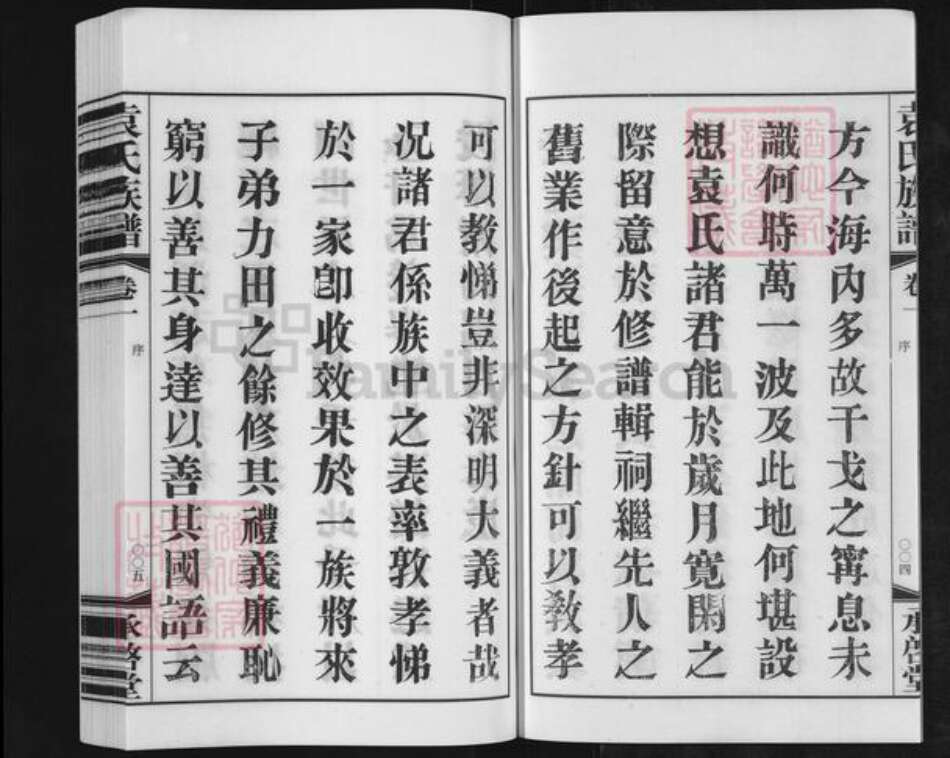 袁氏族譜
卷一
序
〇〇四
承啓堂
方今海內多故干戈之甯息未
識何時萬一波及此地何堪設
想袁氏諸君能於歲月寬閑之
際留意於修譜輯祠繼先人之
舊業作後起之方針可以敎孝
可以敎悌豈非深明大義者哉
况諸君係族中之表率敦孝悌
於一家卽收效果於一族將來
子弟力田之餘修其禮義廉恥
窮以善其身達以善其國語云
袁氏族譜
卷一
序
〇〇五
承啓堂
FamilySearch